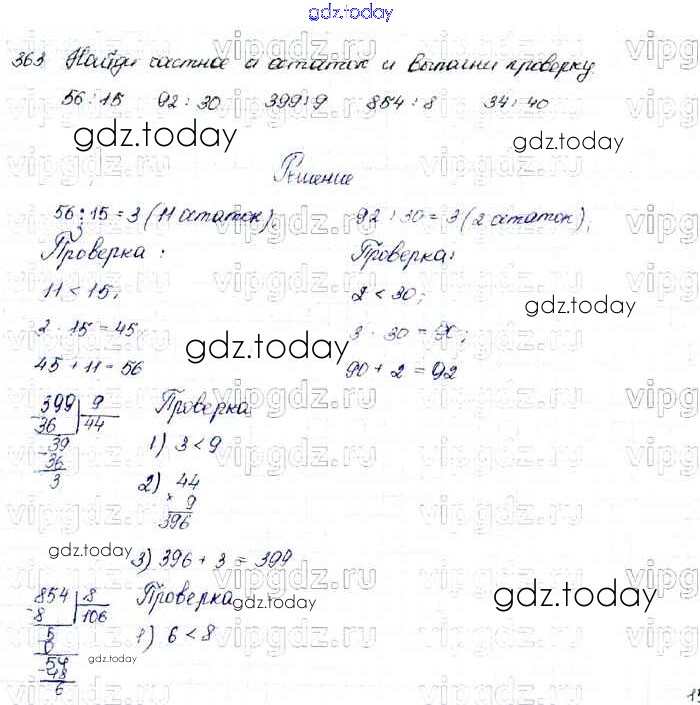 gdz.today
363 Найди частное и остаток и выполни проверку.
56 : 15 92 : 30 399 : 9 854 : 8 34 : 40
Решение
56 : 15 = 3 (11 остаток); 92 : 30 = 3 (2 остаток);
Проверка : Проверка:
11 < 15; 2 < 30;
2 · 15 = 45; 3 · 30 = 90;
45 + 11 = 56 90 + 2 = 92
399 9 Проверка
36 44
39 1) 3 < 9
36
3 2) 44
× 9
396
3) 396 + 3 = 399
854 8 Проверка
8 106
5 1) 6 < 8
0
54
48
6
gdz.today
gdz.today
gdz.today
gdz.today
gdz.today
gdz.today
gdz.today
gdz.today
vipgdz.ru